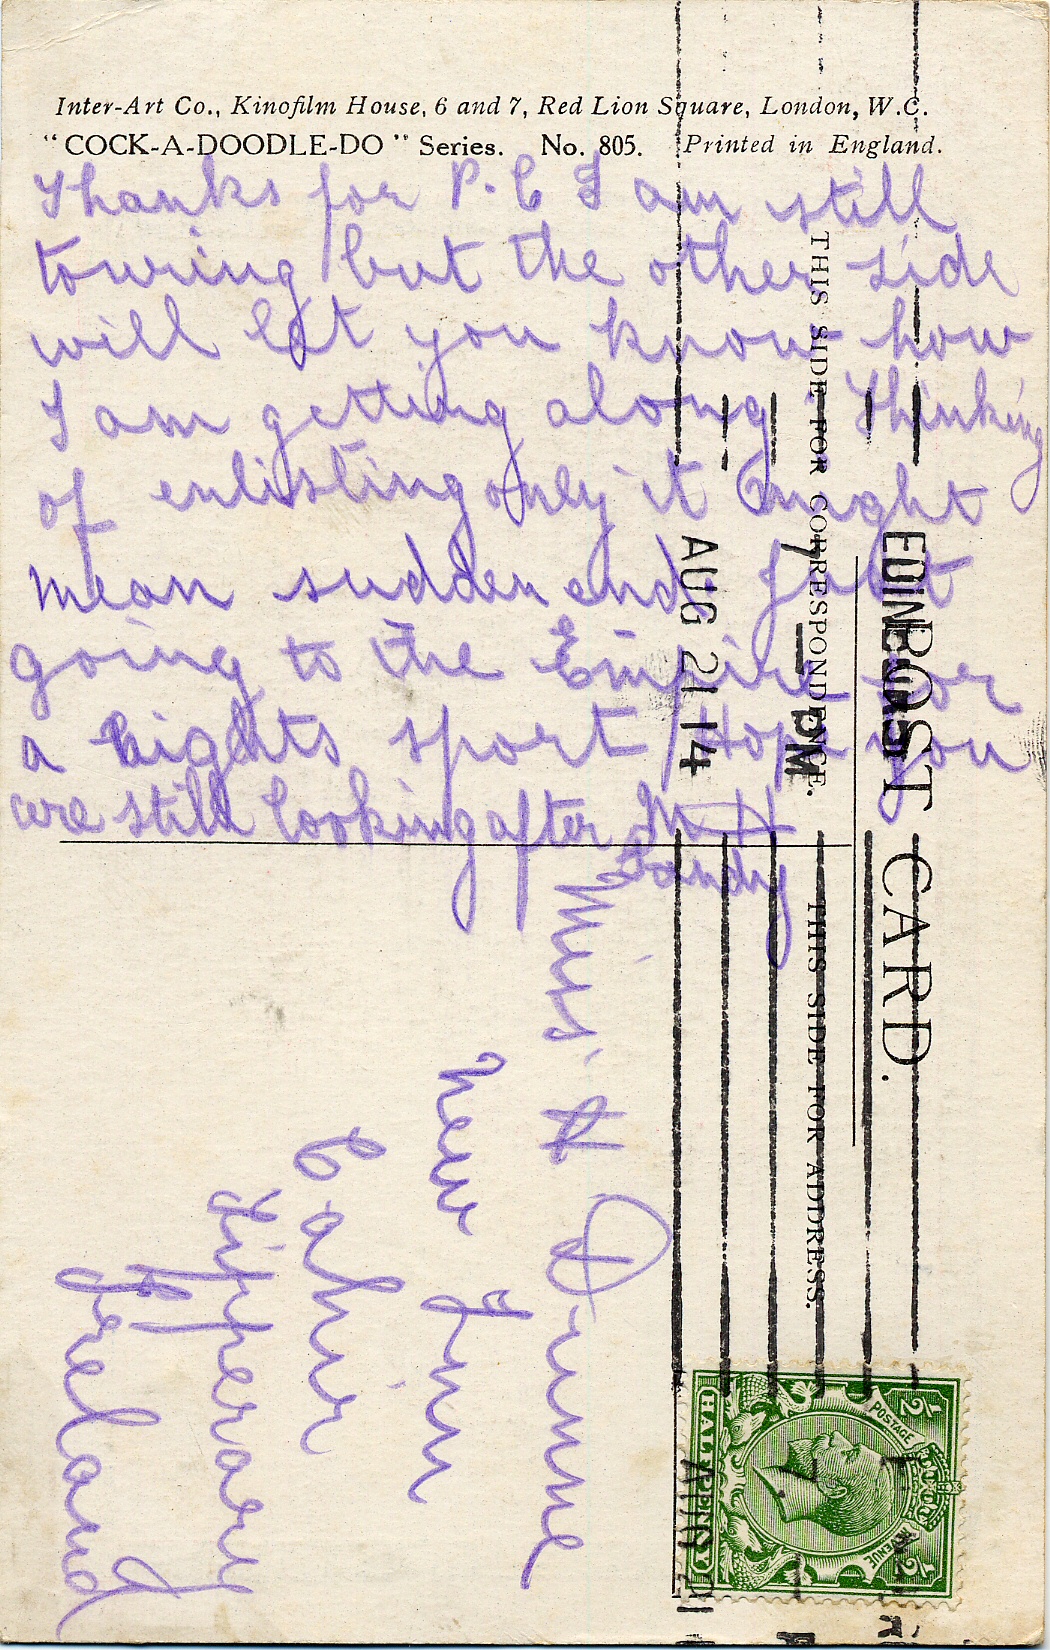 Inter-Art Co., Kinofilm House, 6 and 7, Red Lion Square, London, W.C.
"COCK-A-DOODLE-DO" Series. No. 805. Printed in England.
Thanks for P.C I am still
touring but the other side
will let you know how
I am getting along Thinking
of enlisting only it might
mean sudden end Just
going to the Empire for
a nights sport Hope you
are still looking after M H
Sandy
POST CARD.
THIS SIDE FOR CORRESPONDENCE.
THIS SIDE FOR ADDRESS.
EDINBURGH
7 - PM
AUG 21 14
Miss A Dunne
New Inn
Cahir
Tipperary
Ireland
POSTAGE
REVENUE
HALFPENNY